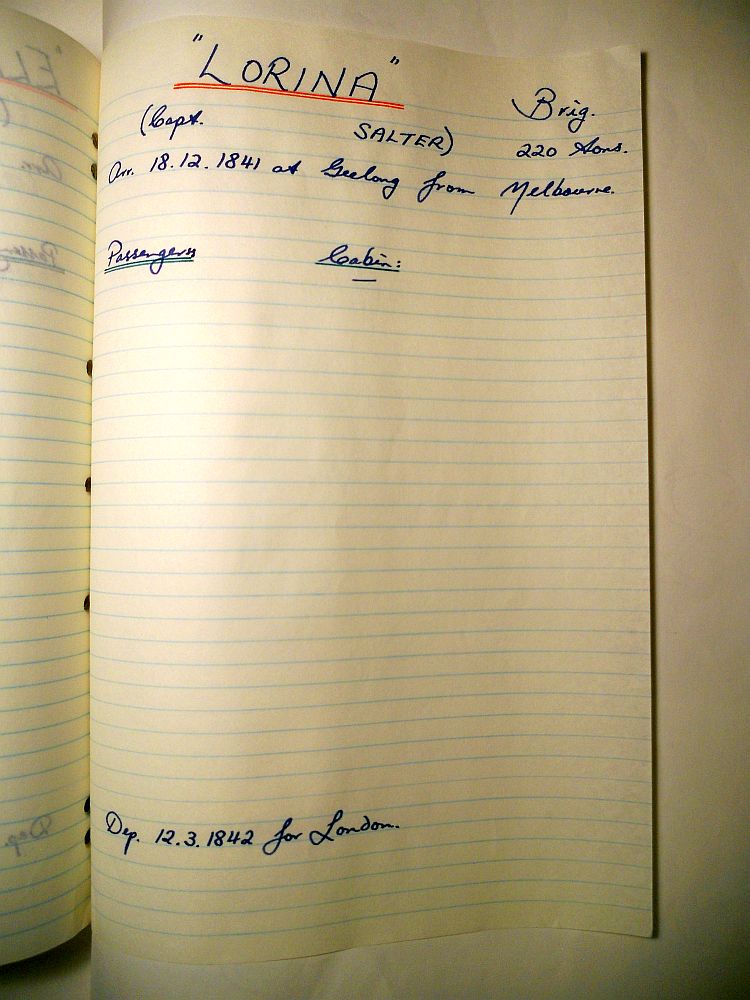 "LORINA" Brig.
(Capt. SALTER) 220 tons.
Arr. 18.12.1841 at Geelong from Melbourne.
Passengers Cabin:
—
Dep. 12.3.1842 for London.